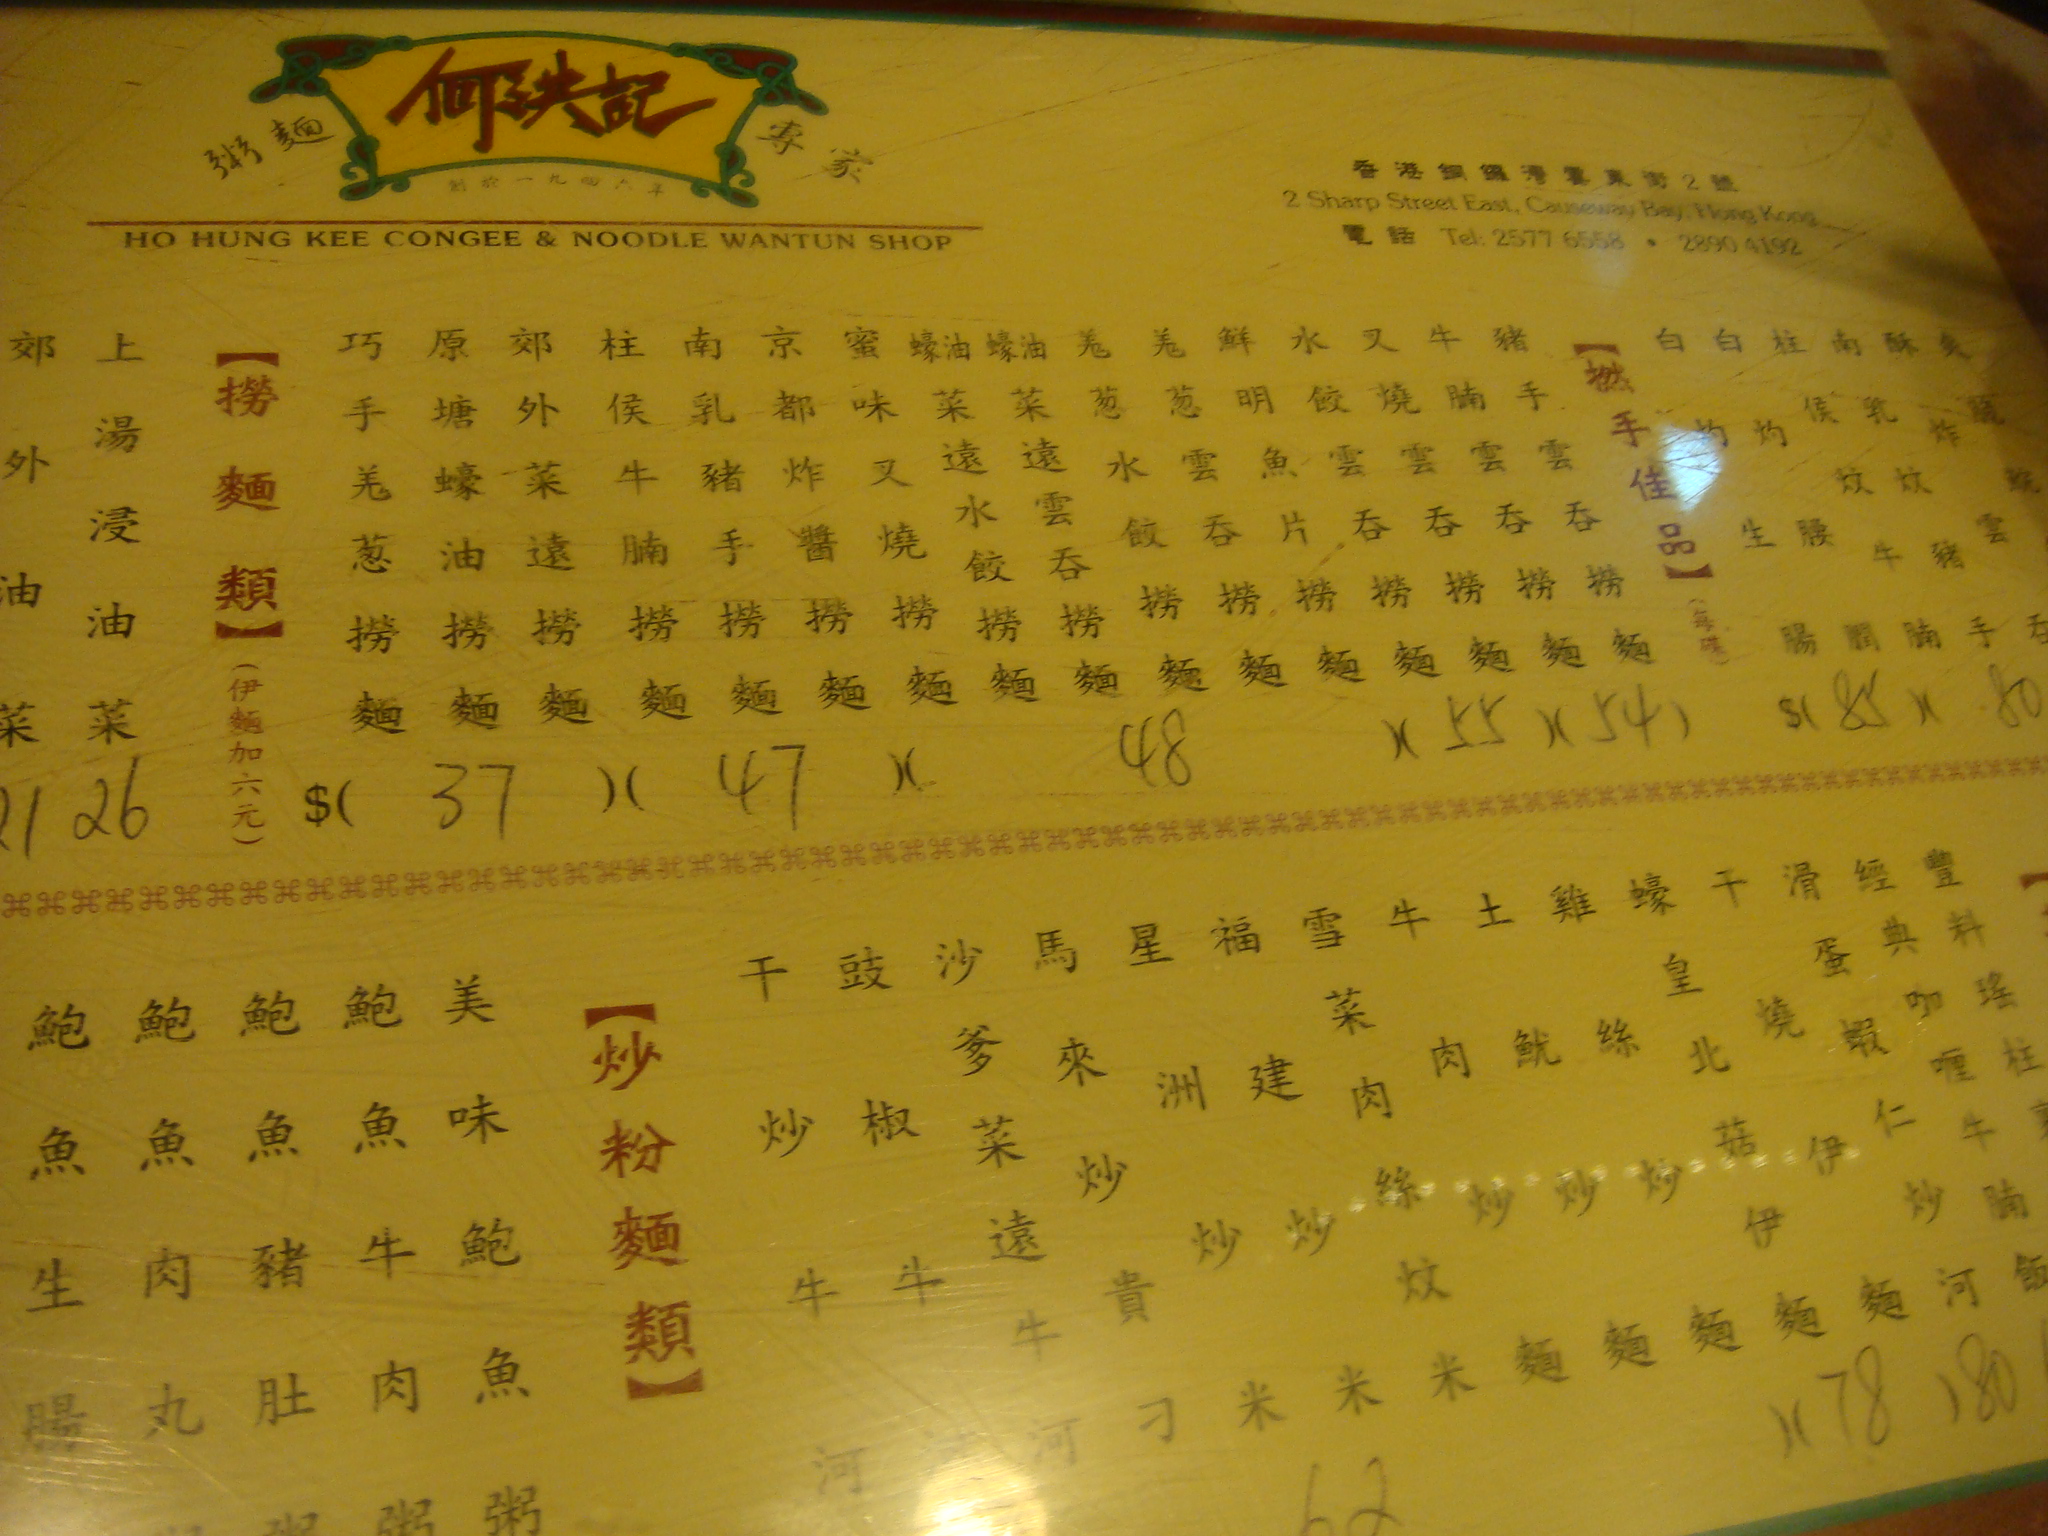 何洪記
粥麵
專家
創於一九四六年
HO HUNG KEE CONGEE & NOODLE WANTUN SHOP
香港銅鑼灣霎東街2號
2 Sharp Street East, Causeway Bay, Hong Kong
電話 Tel: 2577 6558 • 2890 4192
白灼
白灼
柱侯炆牛腩
南乳炆豬手
【撚手佳品】
豬手雲吞撈麵
牛腩雲吞撈麵
叉燒雲吞撈麵
水餃雲吞撈麵
鮮明魚片撈麵
羗葱雲吞撈麵
羗葱水餃撈麵
蠔油菜遠雲吞撈麵
蠔油菜遠水餃撈麵
蜜味叉燒撈麵
京都炸醬撈麵
南乳豬手撈麵
柱侯牛腩撈麵
郊外菜遠撈麵
原塘蠔油撈麵
巧手羗葱撈麵
【撈麵類】(伊麵加六元)
上湯浸油菜
郊外油菜
21 26
$( 37 )( 47 )( 48 )( 55 )( 54 )
$( 85 )( 80
豐料瑤柱
經典咖喱牛腩飯
滑蛋蝦仁炒河
干燒伊麵
蠔皇北菇伊麵
雞絲炒麵
土魷炒麵
牛肉炒麵
雪菜肉絲炆米
福建炒米
星洲炒米
馬來炒貴刁
沙爹菜遠牛河
豉椒牛河
干炒牛河
【炒粉麵類】
美味鮑魚粥
鮑魚牛肉粥
鮑魚豬肚粥
鮑魚肉丸粥
鮑魚生腸
62 )( 78 )80